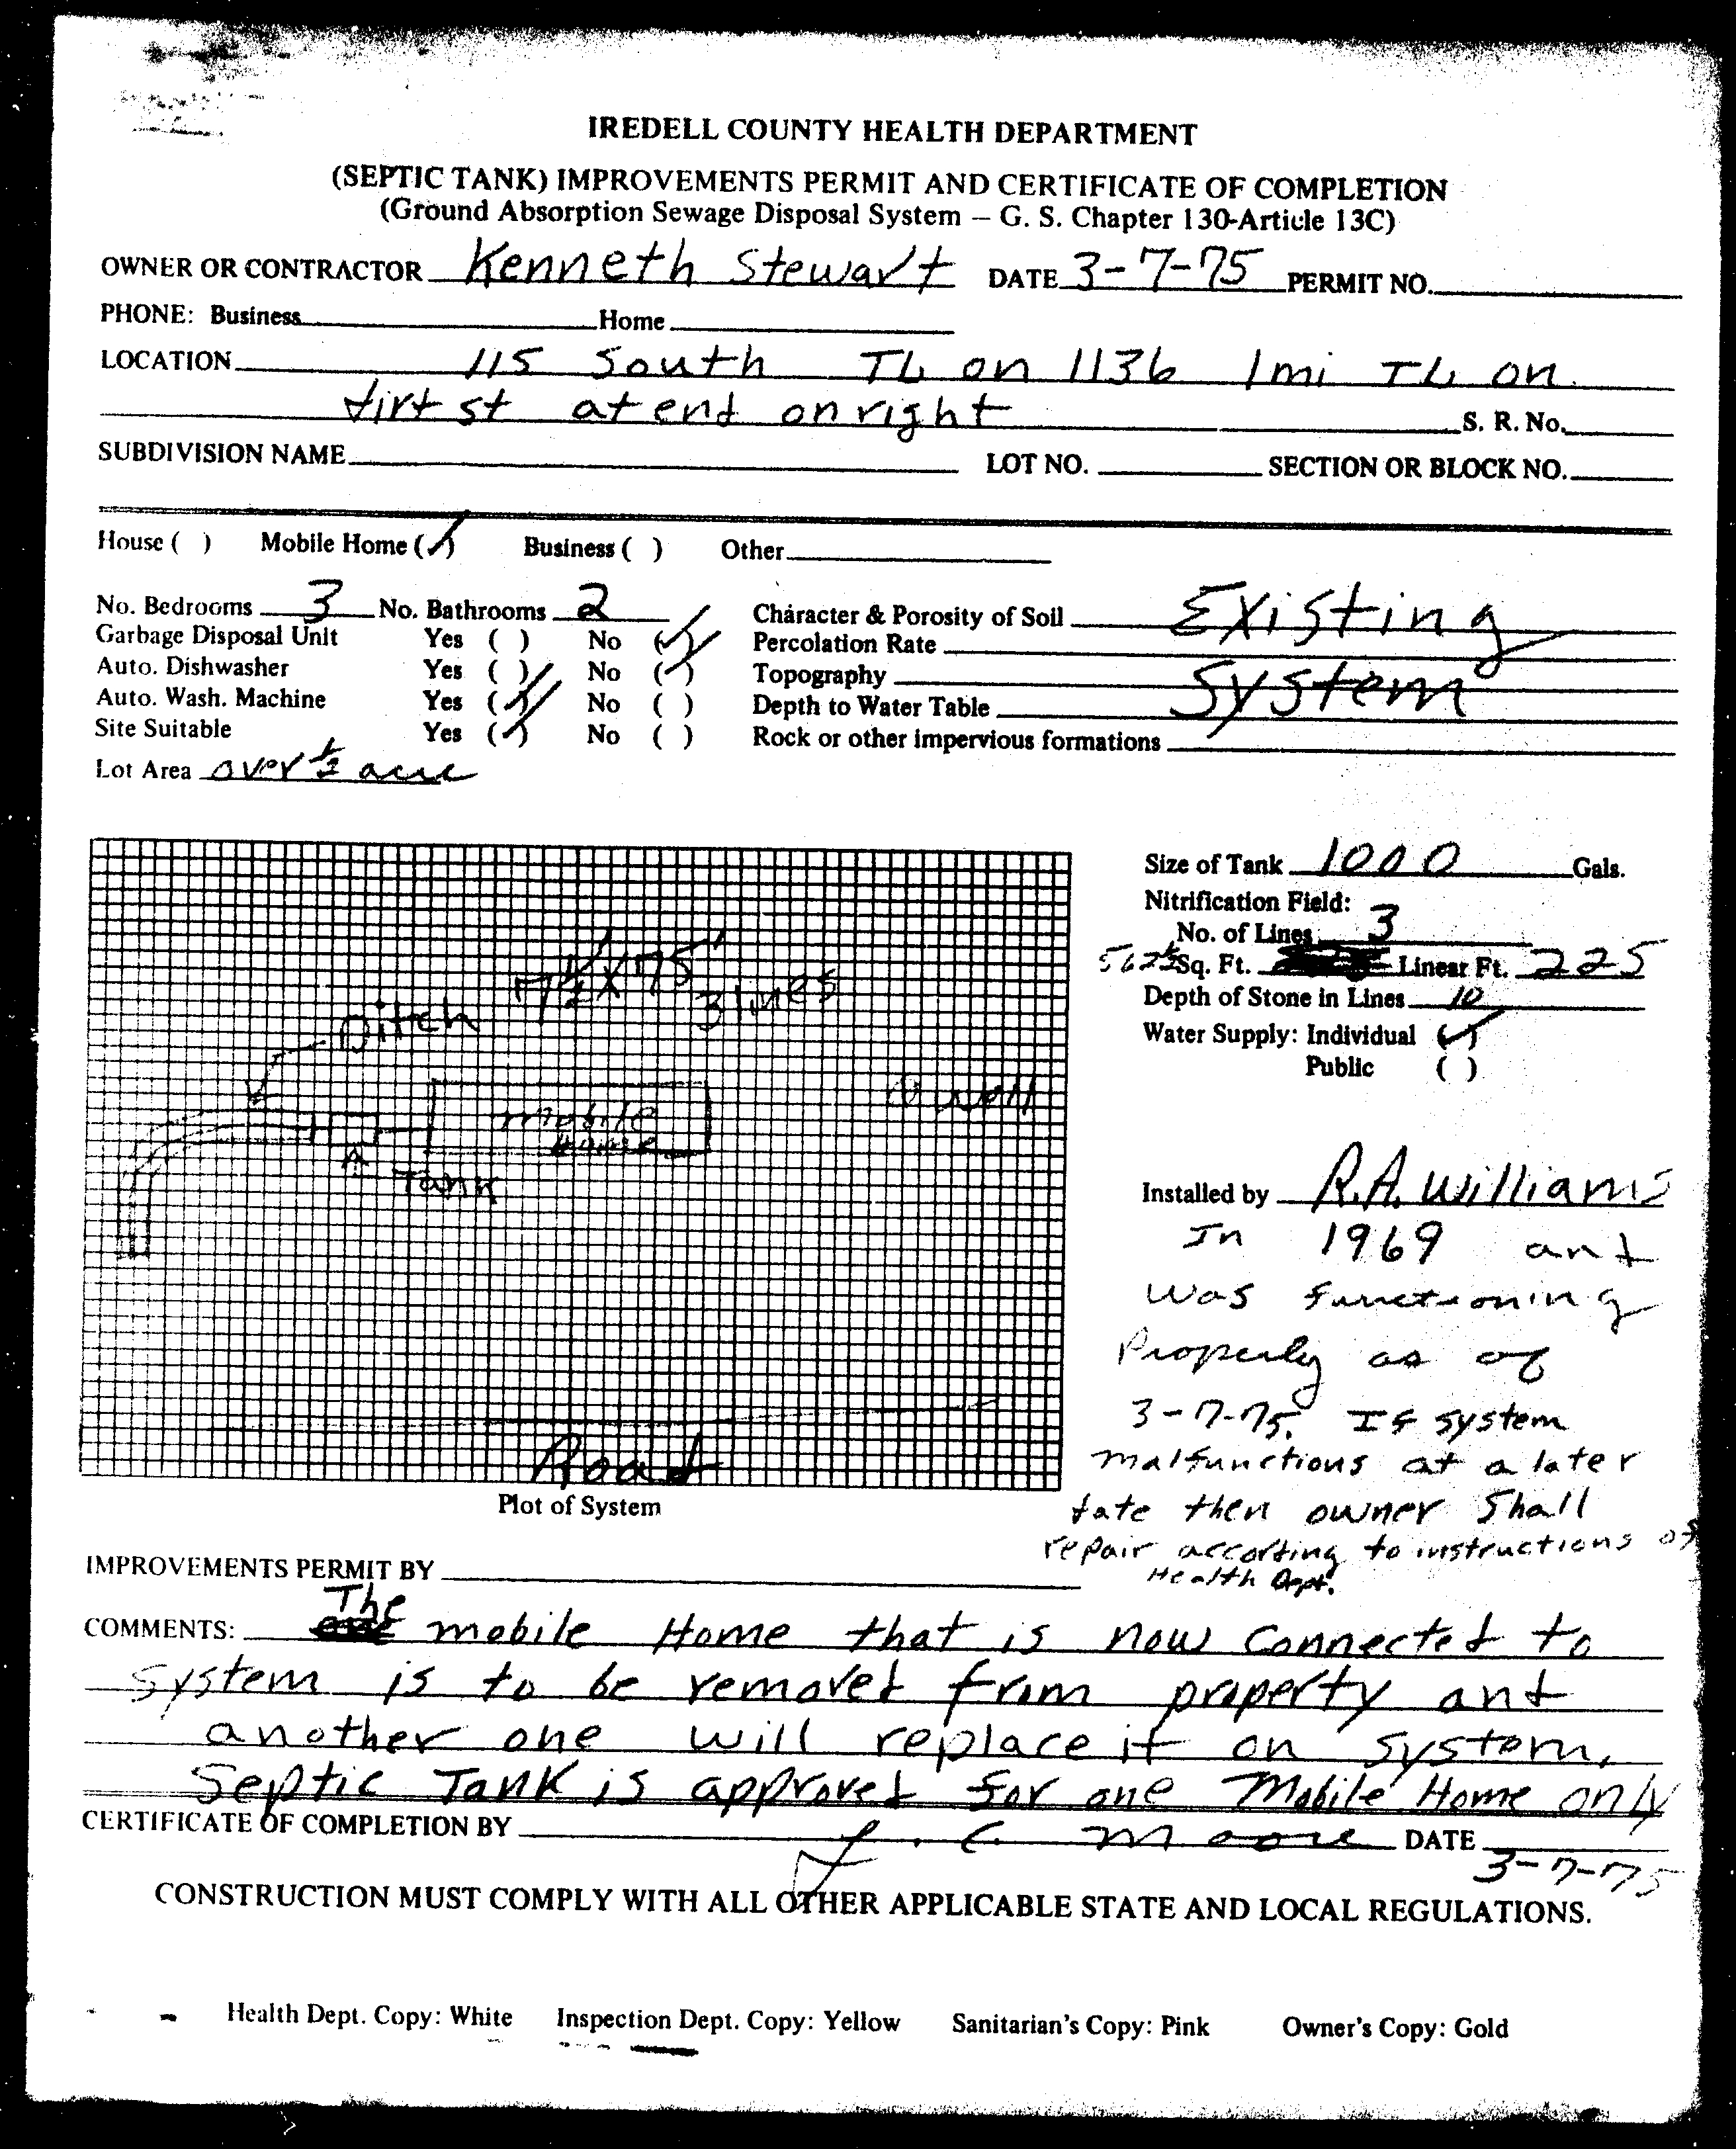 IREDELL COUNTY HEALTH DEPARTMENT
(SEPTIC TANK) IMPROVEMENTS PERMIT AND CERTIFICATE OF COMPLETION
(Ground Absorption Sewage Disposal System – G. S. Chapter 130-Article 13C)
OWNER OR CONTRACTOR Kenneth Stewart DATE 3-7-75 PERMIT NO.
PHONE: Business Home
LOCATION 115 South TL on 1136 1mi TL on
dirt st at end on right S. R. No.
SUBDIVISION NAME LOT NO. SECTION OR BLOCK NO.
House ( ) Mobile Home (✓) Business ( ) Other
No. Bedrooms 3 No. Bathrooms 2 Character & Porosity of Soil Existing
Garbage Disposal Unit Yes ( ) No (✓) Percolation Rate
Auto. Dishwasher Yes ( ) No (✓) Topography System
Auto. Wash. Machine Yes (✓) No ( ) Depth to Water Table
Site Suitable Yes (✓) No ( ) Rock or other impervious formations
Lot Area over ½ acre
Size of Tank 1000 Gals.
Nitrification Field:
No. of Lines 3
Sq. Ft. Linear Ft. 225
Depth of Stone in Lines 10
Water Supply: Individual (✓)
Public ( )
Ditch 7½' X 75'
3 lines
well
mobile
Home
Tank
Road
Plot of System
Installed by R.A. Williams
In 1969 and
was functioning
Properly as of
3-7-75. If system
malfunctions at a later
date then owner Shall
repair according to instructions of
Health Dept.
IMPROVEMENTS PERMIT BY
COMMENTS: The mobile Home that is now connected to
System is to be removed from property and
another one will replace it on system.
Septic Tank is approved for one Mobile Home only
CERTIFICATE OF COMPLETION BY J. C. Moore DATE 3-7-75
CONSTRUCTION MUST COMPLY WITH ALL OTHER APPLICABLE STATE AND LOCAL REGULATIONS.
Health Dept. Copy: White Inspection Dept. Copy: Yellow Sanitarian's Copy: Pink Owner's Copy: Gold